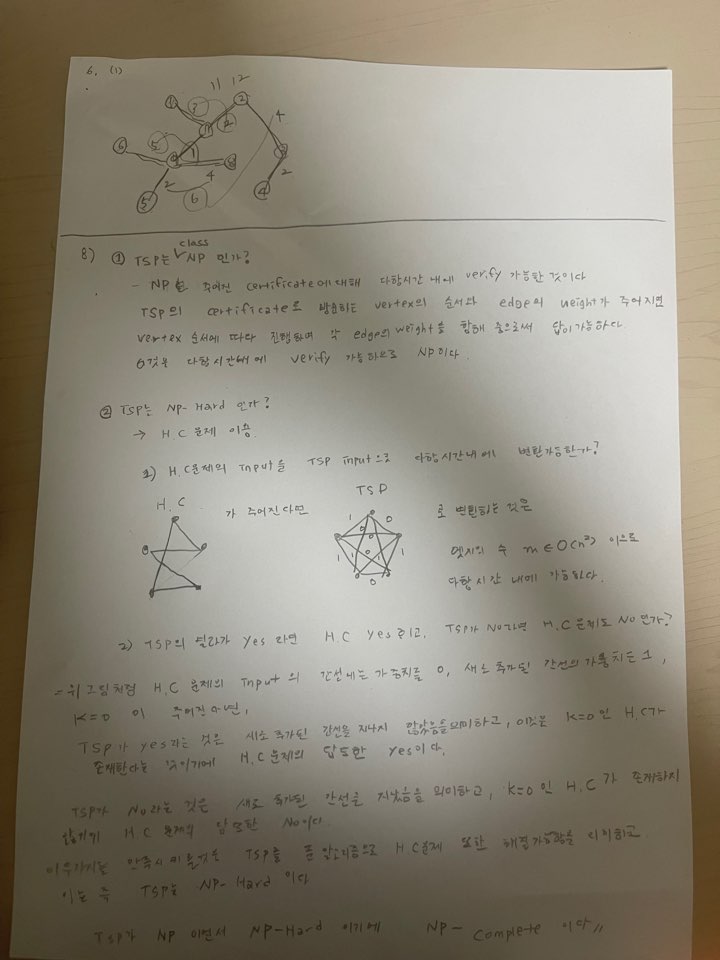 6. (1)
11 12
3 2 4
5 1
6 8
2 4 2
5 6 4
8) ① TSP는 class NP 인가?
- NP는 주어진 certificate에 대해 다항시간 내에 verify 가능한 것이다
TSP의 certificate로 방문하는 vertex의 순서와 edge의 weight가 주어지면
vertex 순서에 따라 진행하며 각 edge의 weight를 합해 줌으로써 답이 가능하다.
이것을 다항시간내에 verify 가능하므로 NP이다.
② TSP는 NP-Hard 인가?
→ H.C 문제 이용.
1) H.C문제의 Input을 TSP input으로 다항시간내에 변환가능한가?
H.C 가 주어진다면 TSP 로 변환하는 것은
1 0
1 1
1 1
0
엣지의 수 m∈O(n²) 이므로
다항시간 내에 가능하다.
2) TSP의 결과가 yes 라면 H.C yes 이고, TSP가 No라면 H.C 문제도 No 인가?
= 위 그림처럼 H.C 문제의 Input 의 간선에는 가중치를 0, 새로 추가된 간선의 가중치는 1,
K=0 이 주어진다면,
TSP가 yes라는 것은 새로 추가된 간선을 지나지 않았음을 의미하고, 이것은 K=0인 H.C가
존재한다는 것이기에 H.C 문제의 답 또한 yes이다.
TSP가 No라는 것은 새로 추가된 간선을 지났음을 의미하고, K=0인 H.C가 존재하지
않기에 H.C 문제의 답 또한 No이다.
만족시 TSP를 푼 알고리즘으로 HC문제 또한 해결가능함을 의미하고
이는 즉 TSP는 NP-Hard 이다
TSP가 NP 이면서 NP-Hard 이기에 NP-Complete 이다.